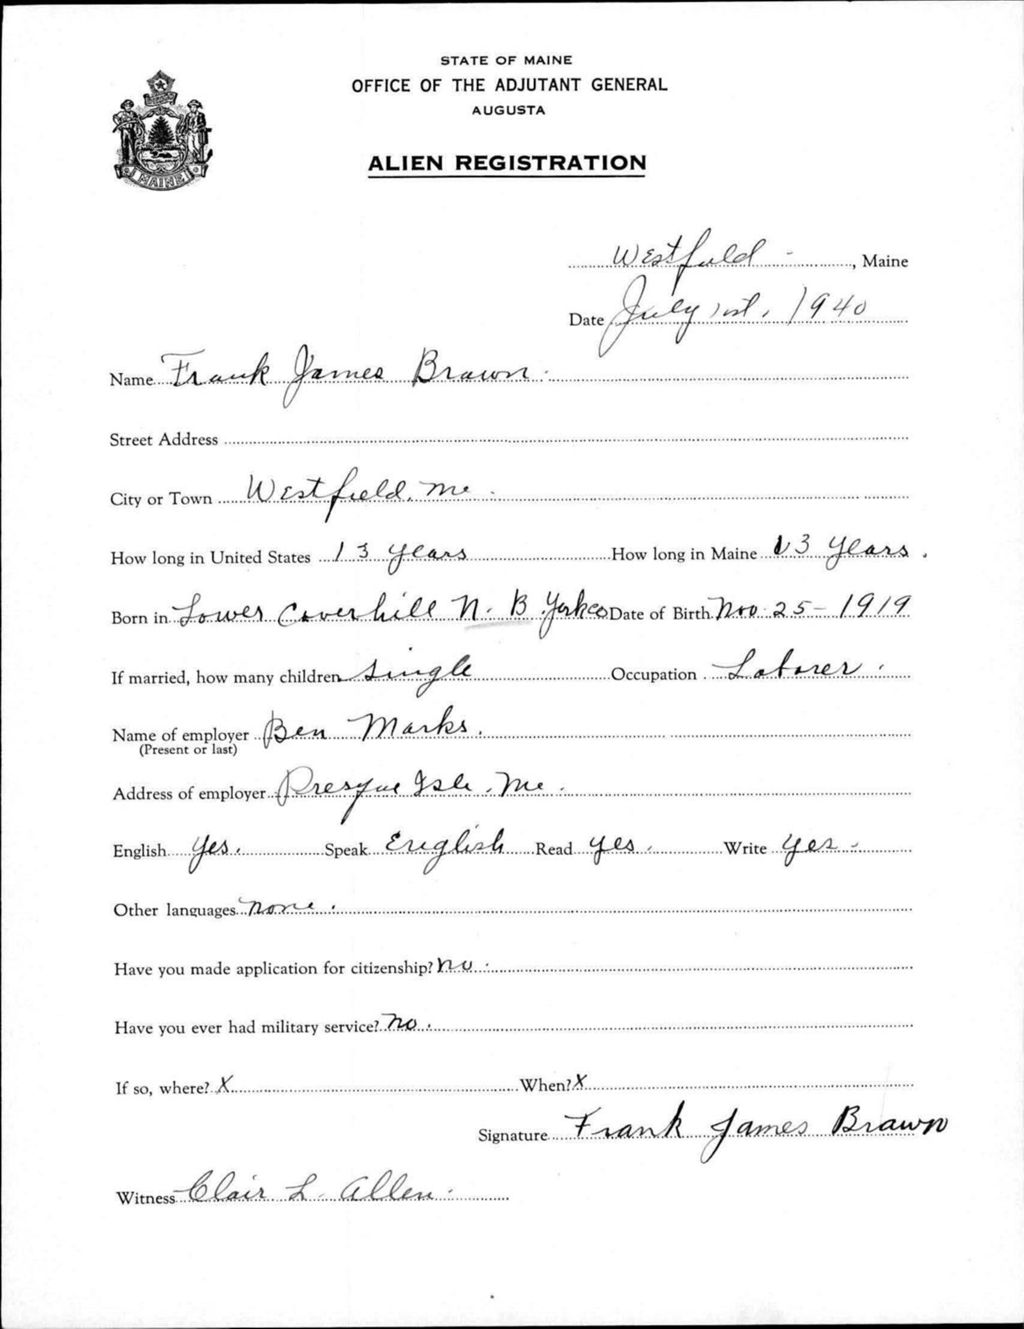 STATE OF MAINE
OFFICE OF THE ADJUTANT GENERAL
AUGUSTA
MAINE
ALIEN REGISTRATION
Westfield, Maine
Date July 1st, 1940
Name Frank James Brawn
Street Address
City or Town Westfield, Me
How long in United States 13 years How long in Maine 13 years.
Born in Lower Coverhill N. B. Date of Birth Nov 25 - 1919
If married, how many children single Occupation Laborer.
Name of employer Ben Marks.
(Present or last)
Address of employer Presque Isle, Me.
English yes. Speak English Read yes. Write yes.
Other languages none.
Have you made application for citizenship? no.
Have you ever had military service? no.
If so, where? X When? X
Signature Frank James Brawn
Witness Clair L. Allen.